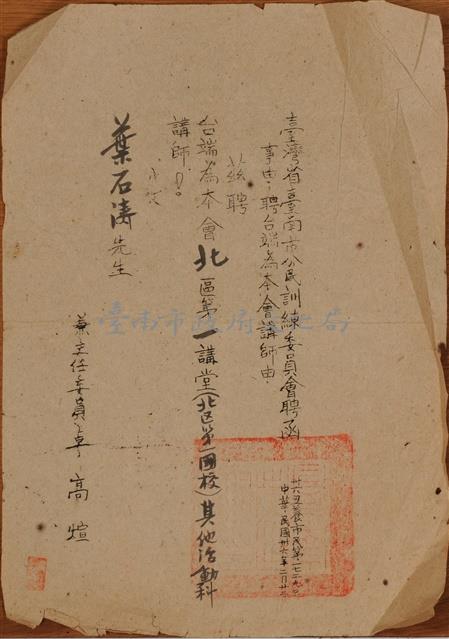 臺灣省臺南市公民訓練委員會聘函
事由：聘台端為本會講師由．
中華民國卅六年二月廿日
茲聘
台端為本會北區第一講堂(北区第一國校)其他活動科
講師！
此致
葉石濤先生
兼主任委員卓高煊
臺南市政府文化局